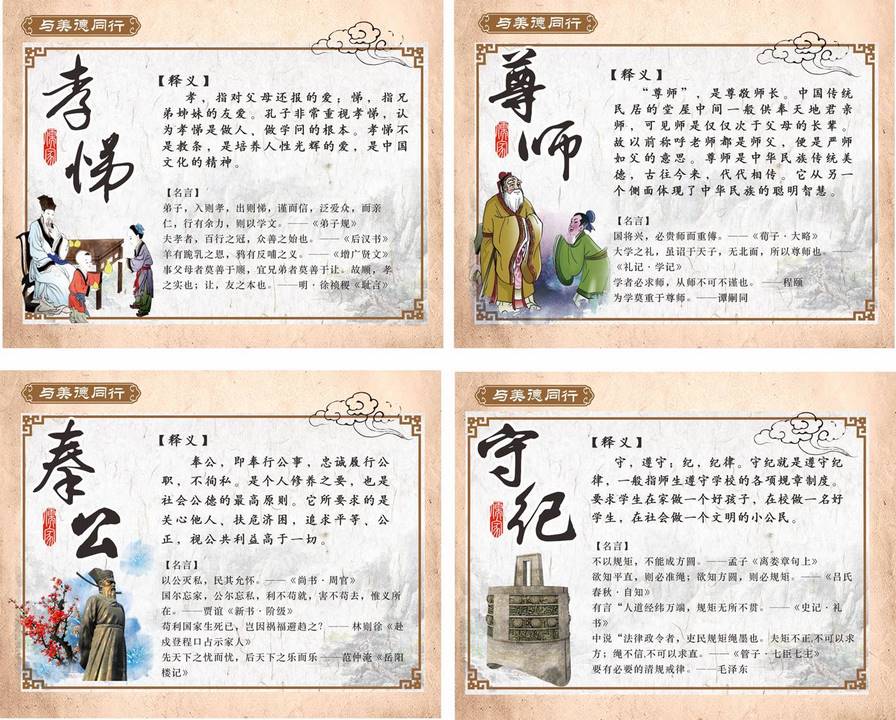 与美德同行
孝悌
儒家
【释义】
孝，指对父母还报的爱；悌，指兄
弟姊妹的友爱。孔子非常重视孝悌，认
为孝悌是做人、做学问的根本。孝悌不
是教条，是培养人性光辉的爱，是中国
文化的精神。
【名言】
弟子，入则孝，出则悌，谨而信，泛爱众，而亲
仁，行有余力，则以学文。——《弟子规》
夫孝者，百行之冠，众善之始也。——《后汉书》
羊有跪乳之恩，鸦有反哺之义。——《增广贤文》
事父母者莫善于顺，宜兄弟者莫善于让。故顺，孝
之实也；让，友之本也。——明·徐祯稷《耻言》
与美德同行
尊师
儒家
【释义】
“尊师”，是尊敬师长。中国传统
民居的堂屋中间一般供奉天地君亲
师，可见师是仅仅次于父母的长辈。
故以前称呼老师都是师父，便是严师
如父的意思。尊师是中华民族传统美
德，古往今来，代代相传。它从另一
个侧面体现了中华民族的聪明智慧。
【名言】
国将兴，必贵师而重傅。——《荀子·大略》
大学之礼，虽诏于天子，无北面，所以尊师也。——
《礼记·学记》
学者必求师，从师不可不谨也。——程颐
为学莫重于尊师。——谭嗣同
与美德同行
奉公
儒家
【释义】
奉公，即奉行公事，忠诚履行公
职，不徇私。是个人修养之要，也是
社会公德的最高原则。它所要求的是
关心他人、扶危济困，追求平等、公
正，视公共利益高于一切。
【名言】
以公灭私，民其允怀。——《尚书·周官》
国尔忘家，公尔忘私，利不苟就，害不苟去，惟义所
在。——贾谊《新书·阶级》
苟利国家生死已，岂因祸福避趋之？——林则徐《赴
戍登程口占示家人》
先天下之忧而忧，后天下之乐而乐——范仲淹《岳阳
楼记》
与美德同行
守纪
儒家
【释义】
守，遵守；纪，纪律。守纪就是遵守纪
律，一般指师生遵守学校的各项规章制度。
要求学生在家做一个好孩子，在校做一名好
学生，在社会做一个文明的小公民。
【名言】
不以规矩，不能成方圆。——孟子《离娄章句上》
欲知平直，则必准绳；欲知方圆，则必规矩。——《吕氏
春秋·自知》
有言“人道经纬万端，规矩无所不贯。——《史记·礼
书》
中说“法律政令者，吏民规矩绳墨也。夫矩不正，不可以求
方；绳不信，不可以求直。——《管子·七臣七主》
要有必要的清规戒律。——毛泽东